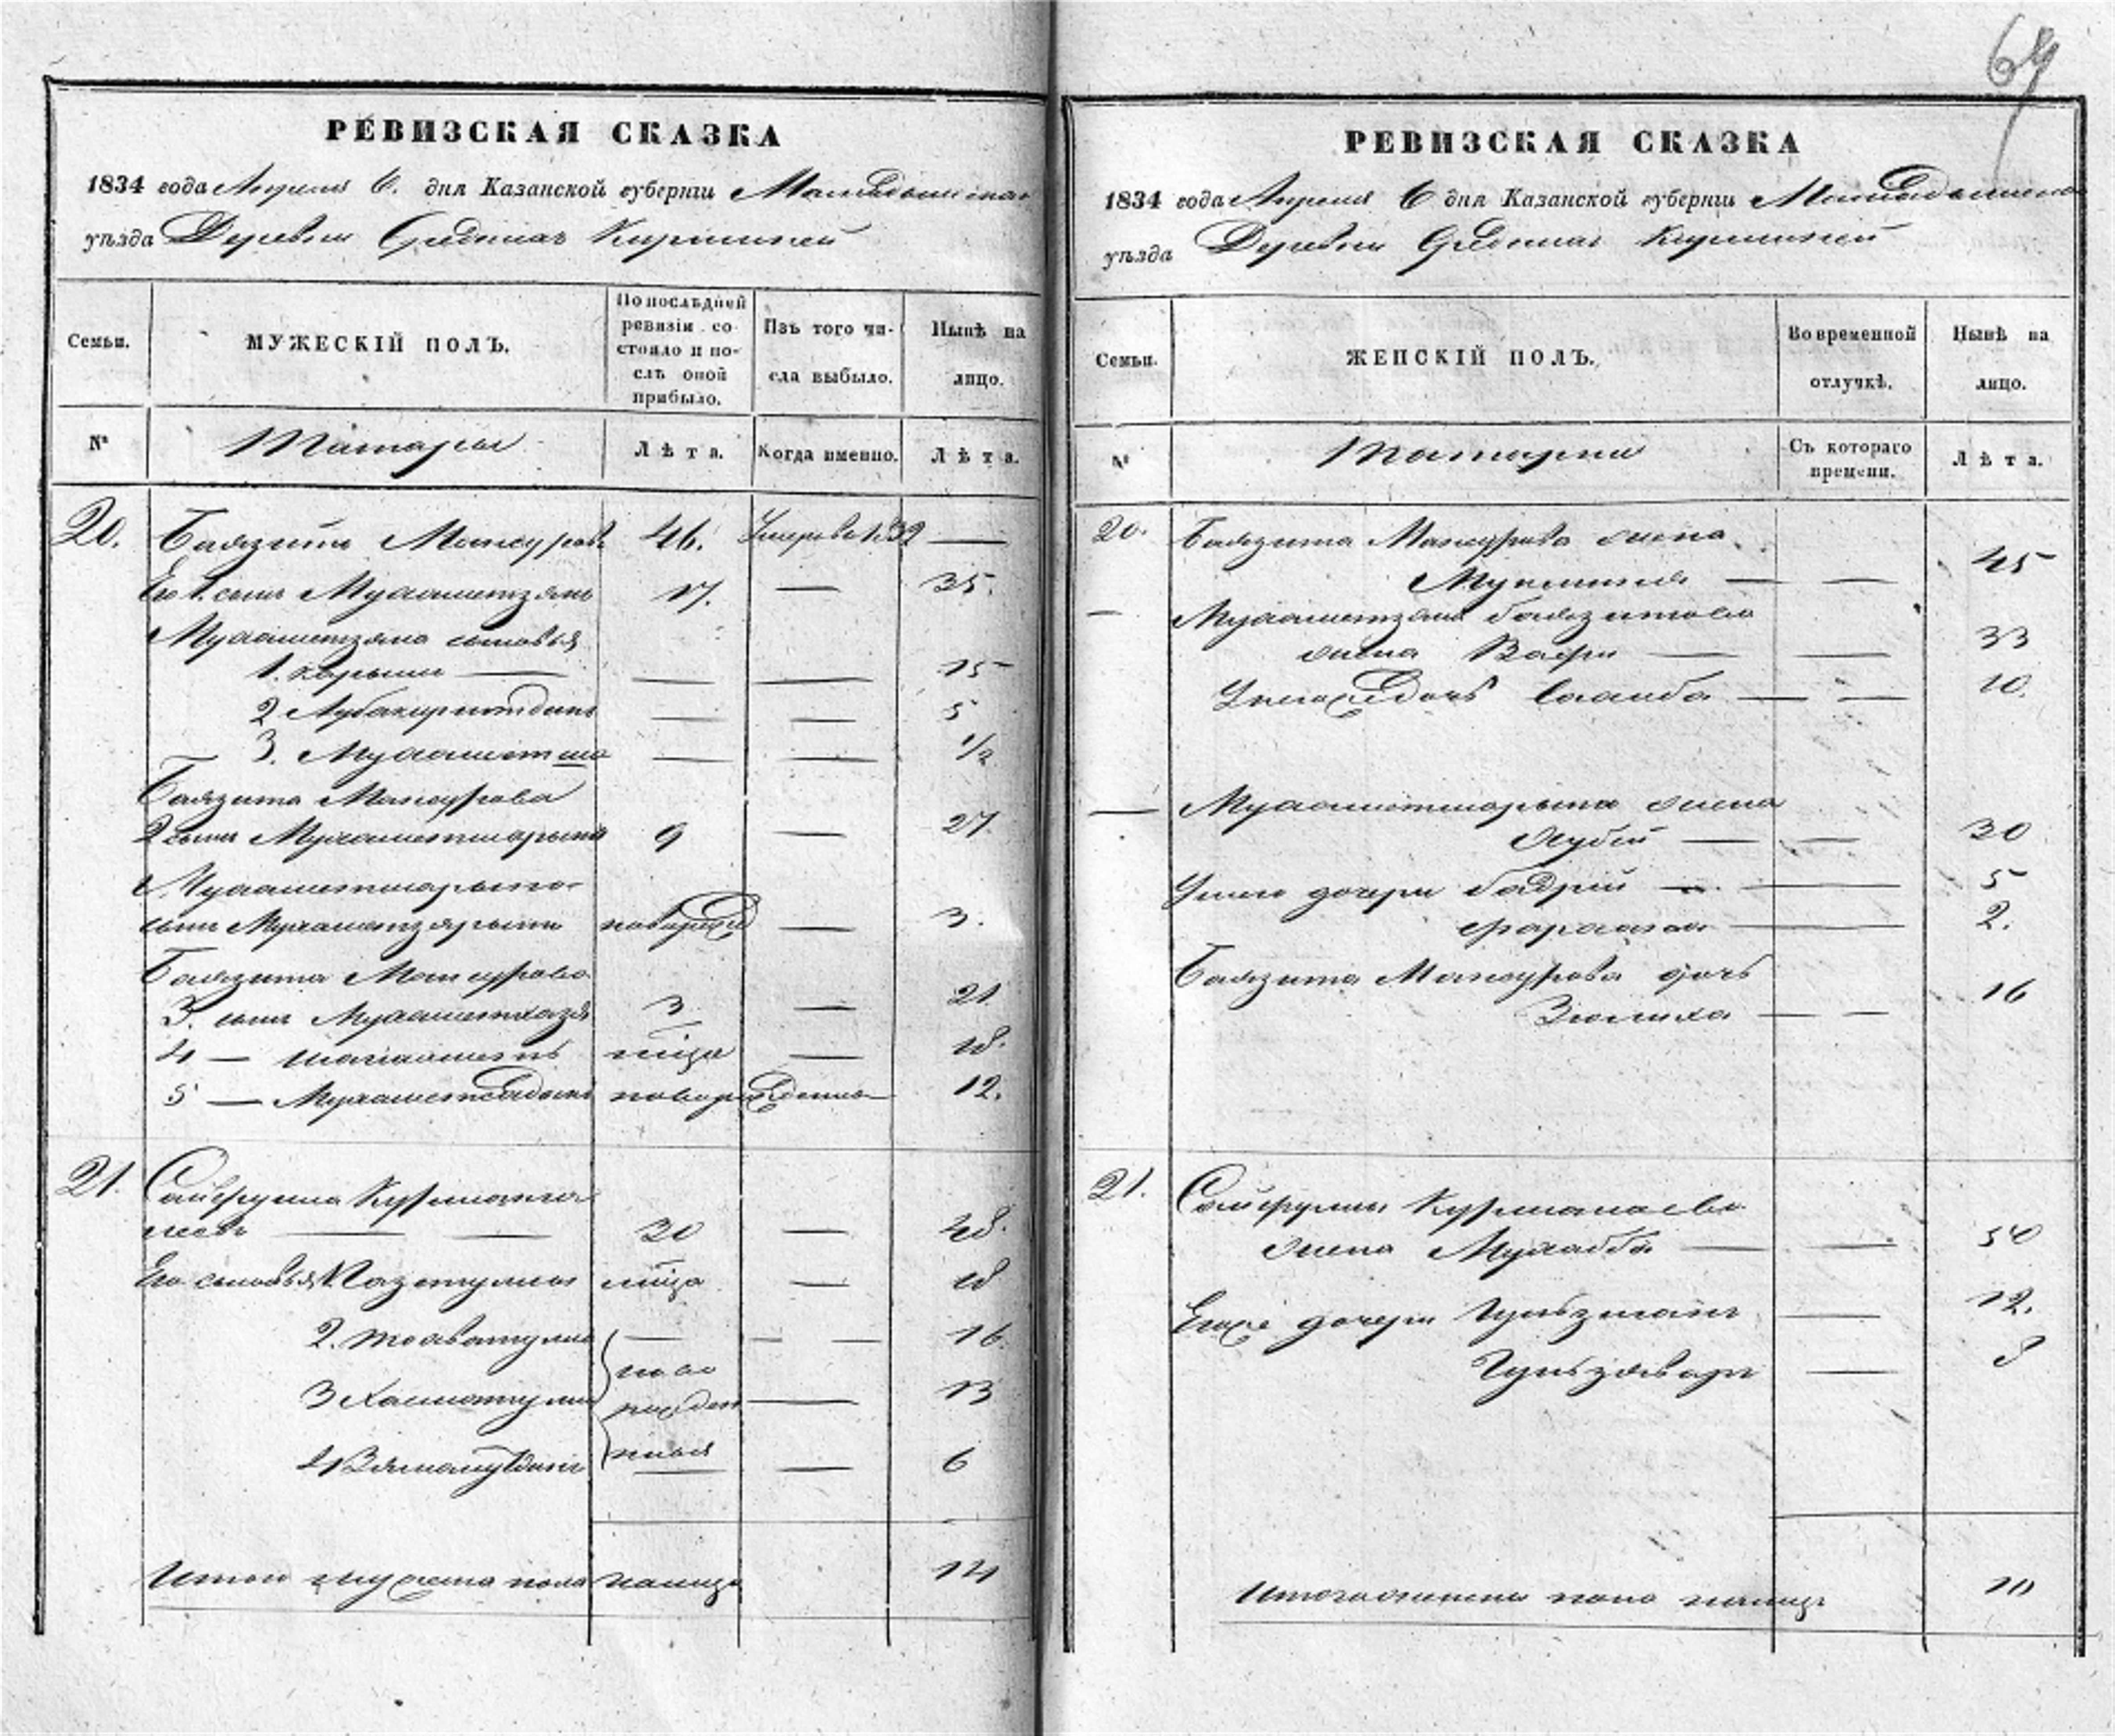 69
РЕВИЗСКАЯ СКАЗКА
1834 года Апреля 6. дня Казанской губернiи Мамадышскаго
уѣзда Деревни Средних Кирменей
Семьи.
МУЖЕСКIЙ ПОЛЪ.
По послѣдней
ревизiи со-
стояло и по-
слѣ оной
прибыло.
Изъ того чи-
сла выбыло.
Нынѣ на
лицо.
№
Татары
Лѣта.
Когда именно.
Лѣта.
20. Баязитъ Мансуровъ 46. Умеръ въ 1832 —
Его 1. сынъ Мухаметзянъ 17. — 35.
Мухаметзяна сыновья
1. Карымъ — — — 15
2 Абубакиритдинъ — — 5
3. Мухаметша — — 1/2
Баязита Мансурова
2 сынъ Мухаметшарыпъ 9 — 27
Мухаметшарыпа
сынъ Мухаметзарыпъ новорожд — 3.
Баязита Мансурова
3. сынъ Мухаметхазя 3 — 21
4 — — 18.
5 — Мухаметсадыкъ новорожденъ 12.
21. Сайфулла Курманга
леевъ — — 30 — 48.
Его сыновья 1. — 18
2. — — — 16.
3 Хасматулла — 13
4 — 6
ново
рожден
ныя
Итого мужеска пола налицо 14
РЕВИЗСКАЯ СКАЗКА
1834 года Апреля 6 дня Казанской губернiи Мамадышскаго
уѣзда Деревни Средних Кирменей
Семьи.
ЖЕНСКIЙ ПОЛЪ.
Во временной
отлучкѣ.
Нынѣ на
лицо.
№
Татарки
Съ котораго
времени.
Лѣта.
20. Баязита Мансурова жена
— — 45
— Мухаметзяна Баязитова
жена Вафри — — 33
У нихъ дочь — — 10.
— Мухаметшарыпа жена
— — 30
У него дочери Бадрiй — — 5
— 2.
Баязита Мансурова дочь
Зюлиха — — 16
21. Сайфуллы Курманаева
жена — — 50
Его же дочери Гульзманъ — 12.
Гульзяваръ — 8
Итого женска пола налицо 10